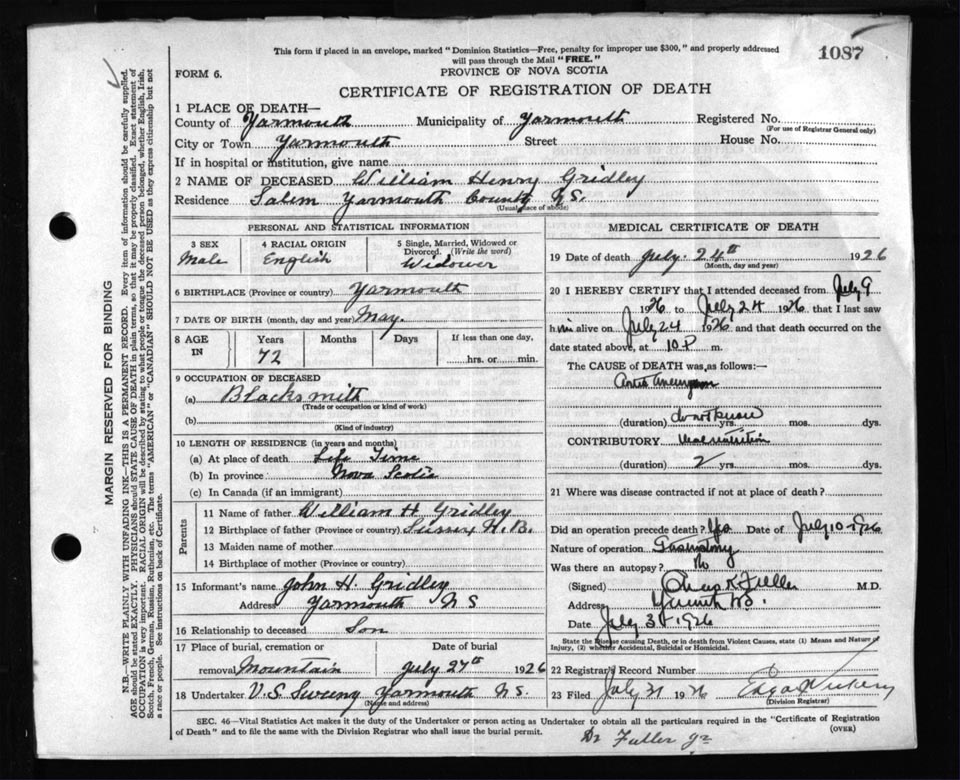 This form if placed in an envelope, marked "Dominion Statistics—Free, penalty for improper use $300," and properly addressed
will pass through the Mail "FREE."
1087
FORM 6.
PROVINCE OF NOVA SCOTIA
CERTIFICATE OF REGISTRATION OF DEATH
1 PLACE OF DEATH—
County of Yarmouth Municipality of Yarmouth Registered No.
(For use of Registrar General only)
City or Town Yarmouth Street House No.
If in hospital or institution, give name
2 NAME OF DECEASED William Henry Gridley
Residence Salem Yarmouth County N.S.
(Usual place of abode)
PERSONAL AND STATISTICAL INFORMATION
3 SEX
Male
4 RACIAL ORIGIN
English
5 Single, Married, Widowed or
Divorced. (Write the word)
Widower
6 BIRTHPLACE (Province or country) Yarmouth
7 DATE OF BIRTH (month, day and year) May.
8 AGE
IN
Years
72
Months
Days
If less than one day,
hrs. or min.
9 OCCUPATION OF DECEASED
(a) Blacksmith
(Trade or occupation or kind of work)
(b)
(Kind of industry)
10 LENGTH OF RESIDENCE (in years and months)
(a) At place of death Life Time
(b) In province Nova Scotia
(c) In Canada (if an immigrant)
Parents
11 Name of father William H Gridley
12 Birthplace of father (Province or country) Sussex N.B.
13 Maiden name of mother
14 Birthplace of mother (Province or country)
15 Informant's name John H. Gridley
Address Yarmouth N S
16 Relationship to deceased Son
17 Place of burial, cremation or
removal Mountain
Date of burial
July 27th 1926
18 Undertaker V. S. Sweeny Yarmouth N S.
(Name and address)
MEDICAL CERTIFICATE OF DEATH
19 Date of death July. 24th 1926
(Month, day and year)
20 I HEREBY CERTIFY that I attended deceased from July 9
1926 to July 24 1926 that I last saw
him alive on July 24 1926 and that death occurred on
date stated above, at 10 P m.
The CAUSE of DEATH was as follows:—
Aneurysm
(duration) do not know yrs. mos. dys.
CONTRIBUTORY Malnutrition
(duration) 2 yrs. mos. dys.
21 Where was disease contracted if not at place of death?
Did an operation precede death? Yes Date of July 10-1926
Nature of operation
Was there an autopsy? No
(Signed) Fuller M.D.
Address Yarmouth
Date July 31 1926
State the Disease causing Death, or in death from Violent Causes, state (1) Means and Nature of
Injury, (2) whether Accidental, Suicidal or Homicidal.
22 Registrars Record Number
23 Filed July 31 1926
(Division Registrar)
SEC. 46—Vital Statistics Act makes it the duty of the Undertaker or person acting as Undertaker to obtain all the particulars required in the "Certificate of Registration
of Death" and to file the same with the Division Registrar who shall issue the burial permit.
(OVER)
Dr Fuller Jr
MARGIN RESERVED FOR BINDING
N.B.—WRITE PLAINLY WITH UNFADING INK—THIS IS A PERMANENT RECORD. Every item of information should be carefully supplied.
AGE should be stated EXACTLY. PHYSICIANS should STATE CAUSE OF DEATH in plain terms, so that it may be properly classified. Exact statement of
OCCUPATION is very important. RACIAL ORIGIN will be described by stating to what people or tongue the deceased person belonged, whether English, Irish,
Scotch, French, German, Russian, Ruthenian, etc. The terms "AMERICAN" or "CANADIAN" SHOULD NOT BE USED as they express citizenship but not
a race or people. See instructions on back of Certificate.